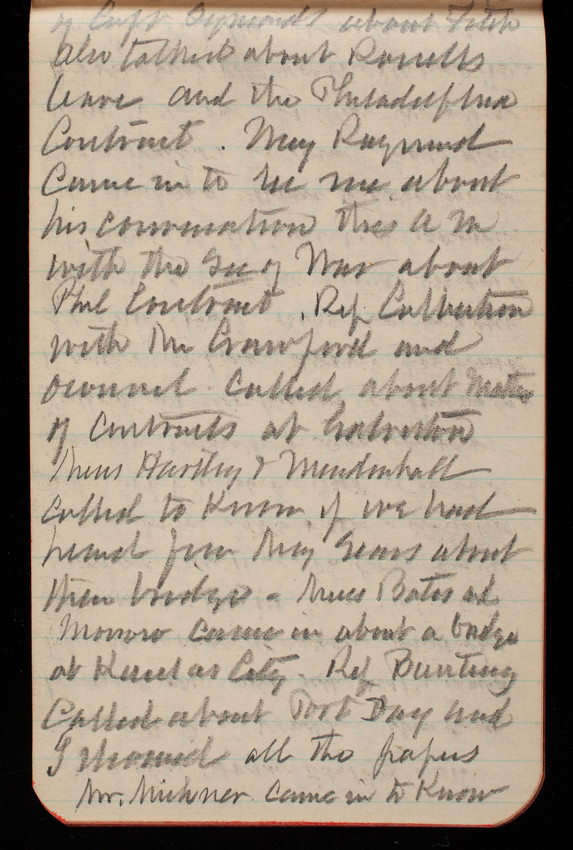 of Capt Symonds about Fitch
also talked about Russells
leave and the Philadelphia
Contract. Maj Raymond
came in to see me about
his conversation this A M
with the Sec of War about
Phil Contract. Rep Culberson
with Mr Crawford and
called about matter
of contracts at Galveston
Mess Hartley & Mendenhall
called to know if we had
heard from Maj Sears about
their bridge - Mess Bates and
Monroe came in about a bridge
at Kansas City. Rep Bunting
called about Port Day and
I showed all the papers
Mr. Michner came in to know